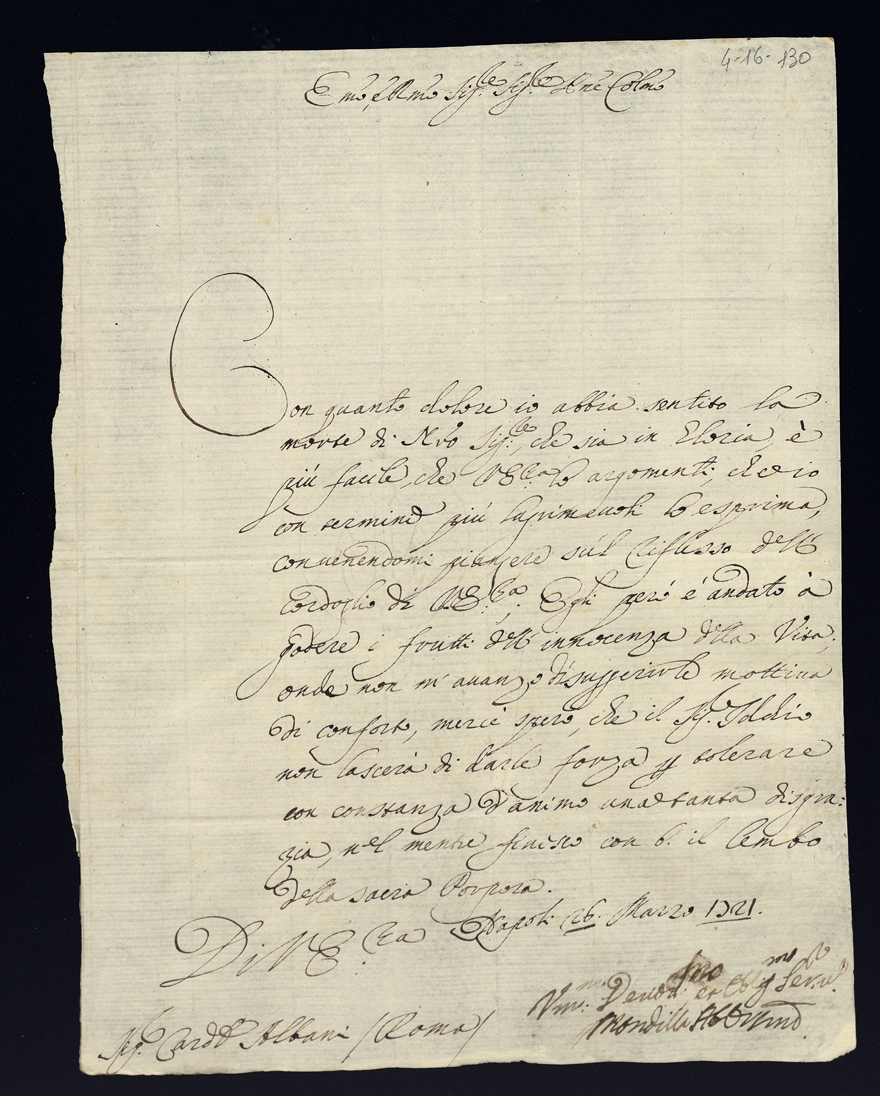 4-16-130
Emo, e Rmo Sig.re Sig.re Pne Colmo
Con quanto dolore io abbia sentito la
morte di Nro Sig.re, che sia in Gloria, è
piú facile, che V. E.za lo argomenti, che io
con termini piú lagrimevoli lo esprima,
convenendomi piangere sul riflesso dell
Cordoglio di V. E.za. Egli peró é andato à
godere i frutti dell innocenza della Vita,
onde non m'avanzo di suggerirle mottivo
di conforto, mercè spero, che il Sig.re Iddio
non lascerà di darle forza p tolerare
con constanza d'animo una tanta disgra:
zia, nel mentre finisco con b. il lembo
della sacra Porpora.
Di V. E.za Napoli 26. Marzo 1721.
Vm.mo Devot.mo et Obl.mo Ser.re
Mondilla Orsini
Sig.r Card.l Albani (Roma)